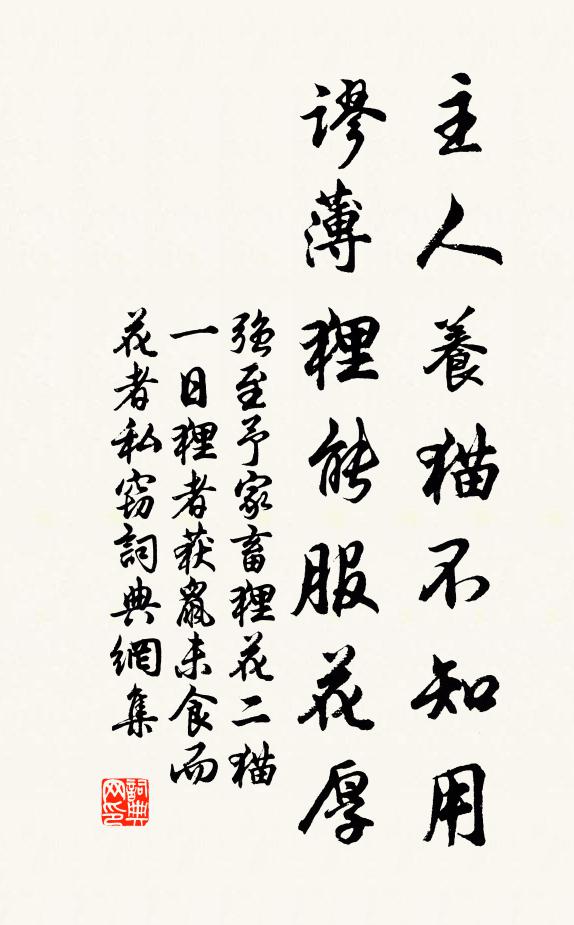 主人養猫不知用
謬薄狸能服花厚
強至予家畜狸花二猫
一日狸者获鼠未食而
花者私窃詞典網集
詞典网印